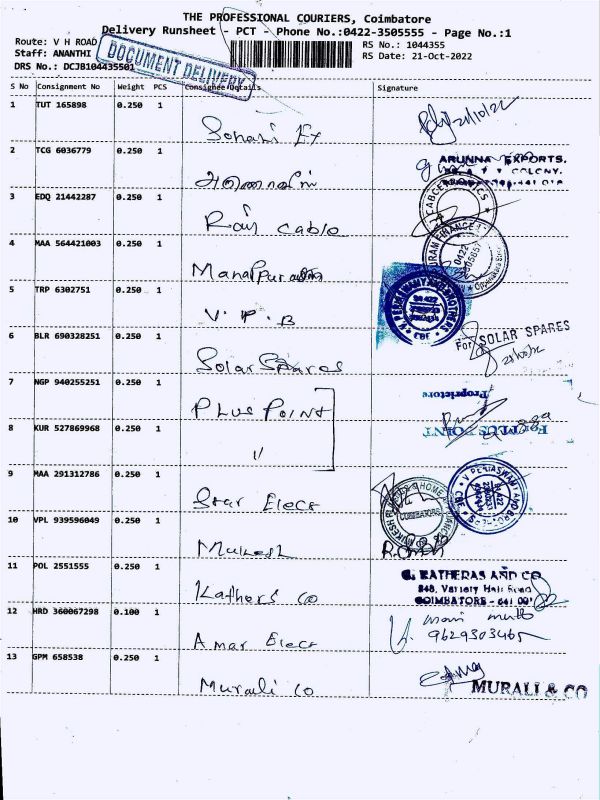 THE PROFESSIONAL COURIERS, Coimbatore
Delivery Runsheet - PCT - Phone No.:0422-3505555 - Page No.:1
Route: V H ROAD
RS No.: 1044355
Staff: ANANTHI
RS Date: 21-Oct-2022
DRS No.: DCJB104435501
DOCUMENT DELIVERY
S No Consignment No Weight PCS Consignee Details Signature
1 TUT 165898 0.250 1
2 TCG 6036779 0.250 1
ARUNNA EXPORTS.
COLONY.
3 EDQ 21442287 0.250 1
Cablo
4 MAA 564421003 0.250 1
Manalpuram
5 TRP 6302751 0.250 1
V. P. B
6 BLR 690328251 0.250 1
For SOLAR SPARES
Solar Spares
7 NGP 940255251 0.250 1
Proprietors
PLUS POINT
8 KUR 527869968 0.250 1
For PLUS POINT
"
9 MAA 291312786 0.250 1
Star Elecs
10 VPL 939596049 0.250 1
COIMBATORE
Mukesh
11 POL 2551555 0.250 1
C. KATHERAS AND CO
848, Variety Hall Road
COIMBATORE - 641 001
Kathers Co
12 HRD 360067298 0.100 1
9629303465
Amar Elecs
13 GPM 658538 0.250 1
MURALI & CO
Murali Co